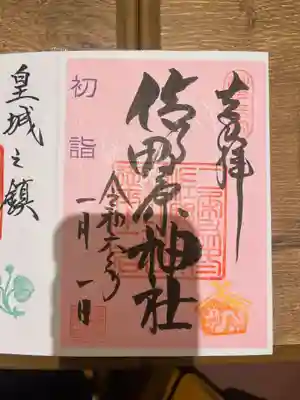 奉拝
佐野原神社
初詣
令和六年
一月一日
皇城之鎮